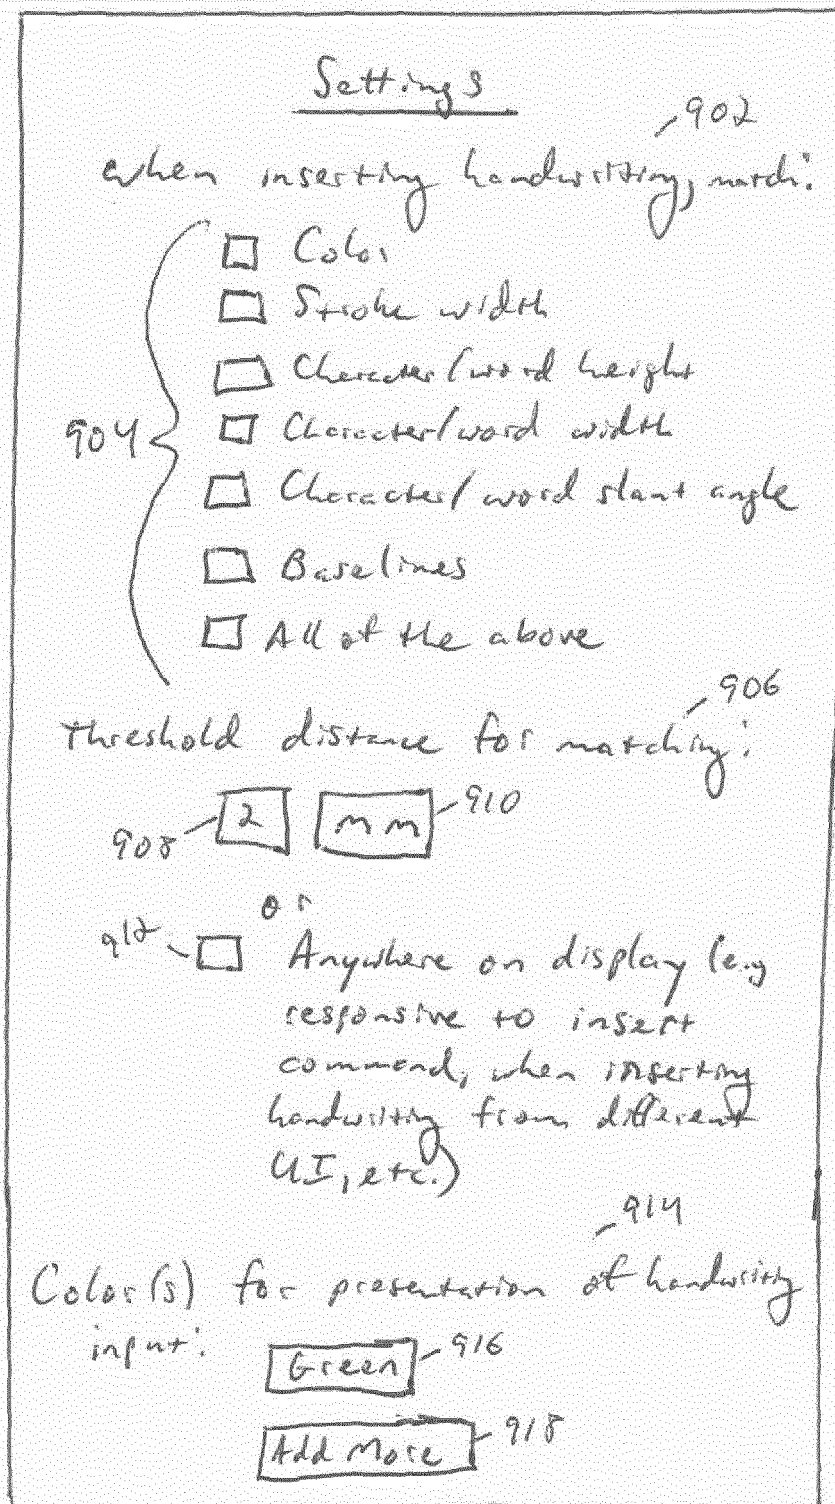 Settings
902
when inserting handwriting, match:
Color
Stroke width
Character/word height
904
Character/word width
Character/word slant angle
Baselines
All of the above
906
Threshold distance for matching:
908
2
mm
910
or
912
Anywhere on display (e.g
responsive to insert
command, when inserting
handwriting from different
UI, etc.)
914
Color(s) for presentation of handwriting
input:
Green
916
Add More
918